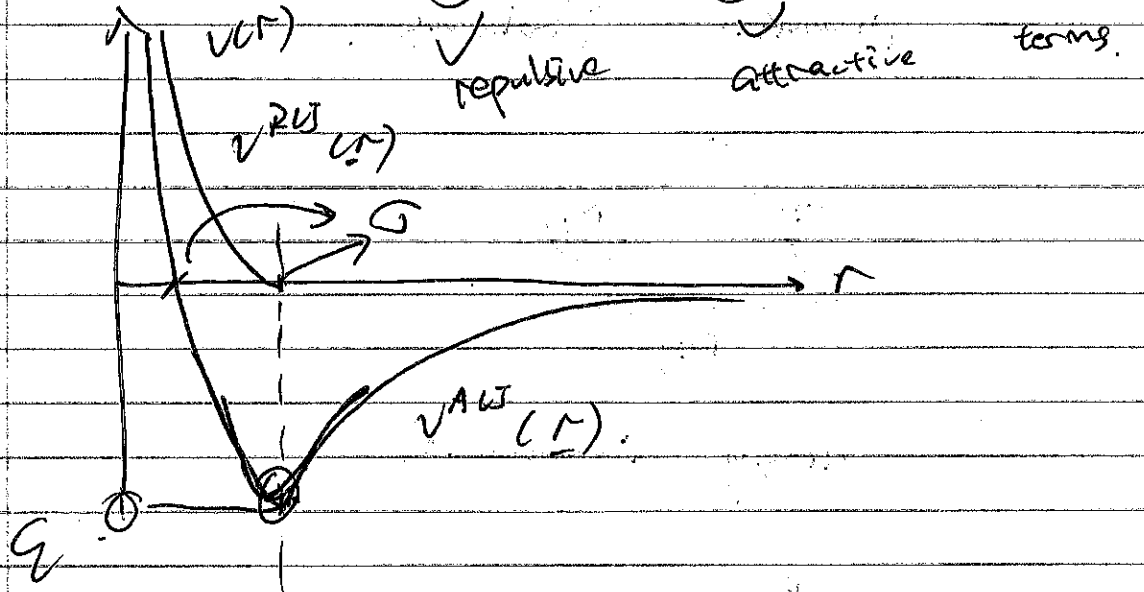 v(r)
repulsive attractive terms.
v^RLJ (r)
σ
r
v^ALJ (r).
ε